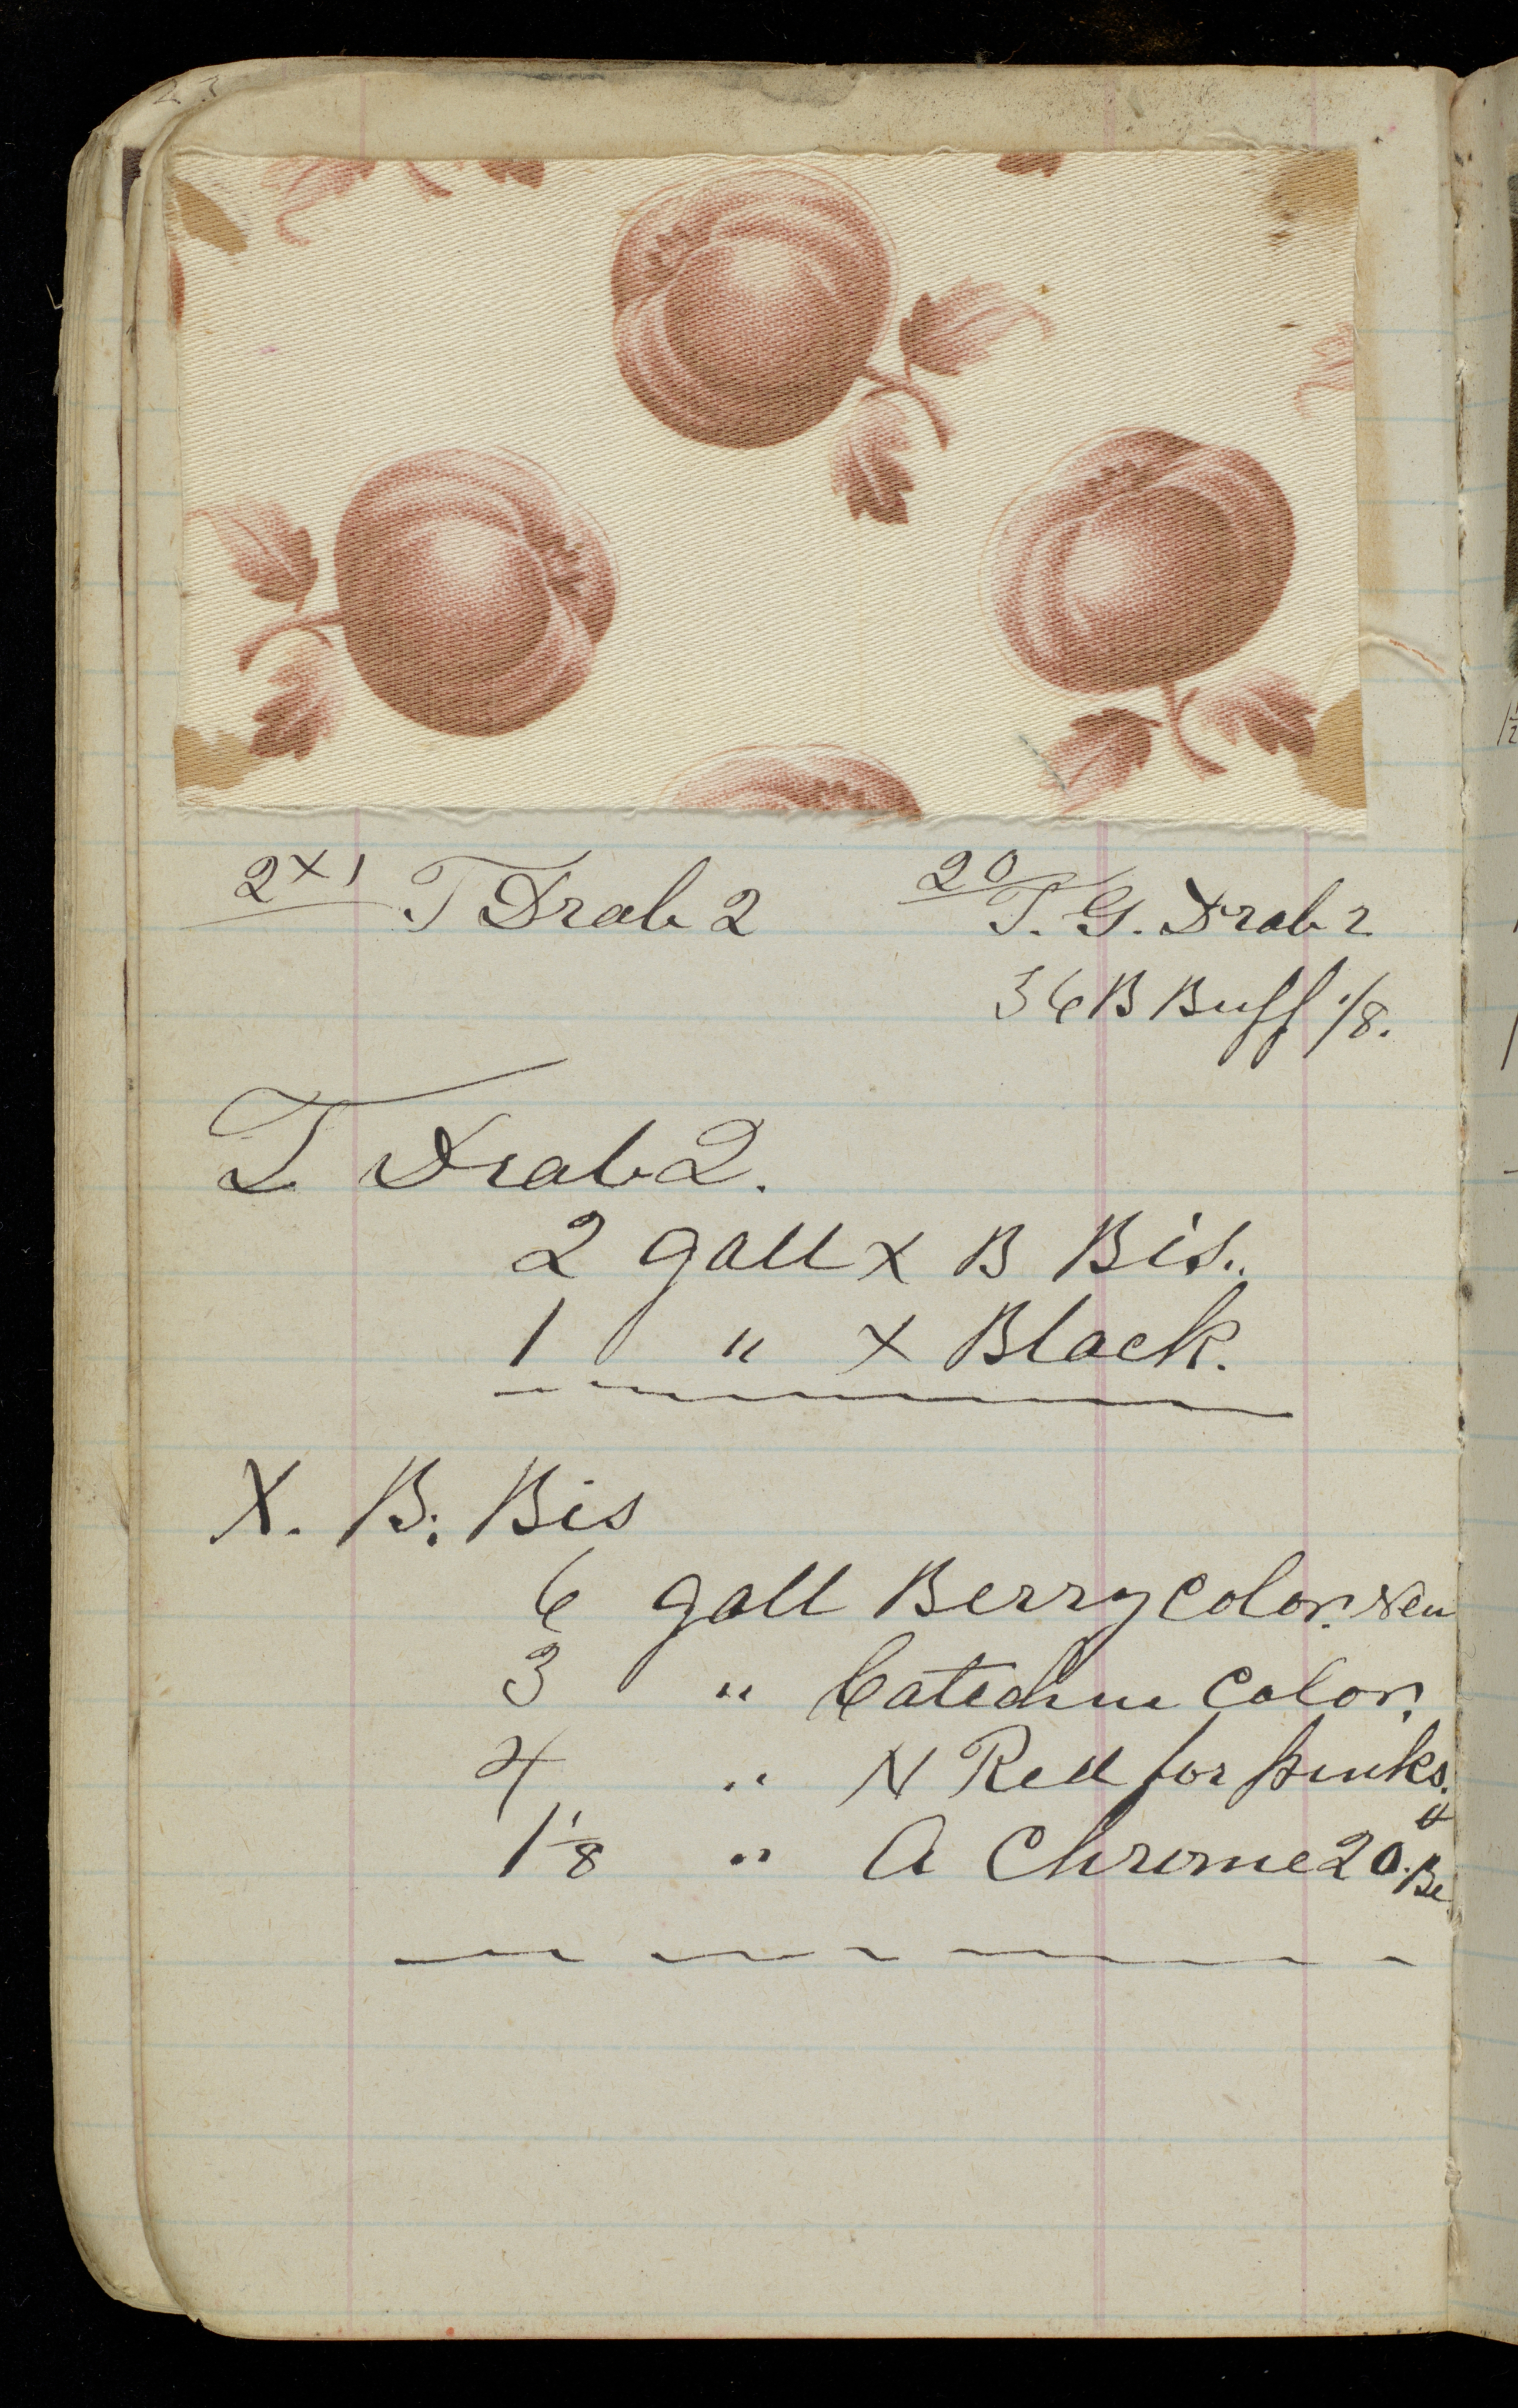 23
2x1 T Drab 2
20 T. G. Drab 2
36 B Buff 1/8.
T Drab 2.
2 gall x B Bis..
1 " x Black.
X. B. Bis
6 gall Berry Color. New
3 " Catechue Color.
4 " N Red for pinks.
1 1/8 " A Chrome 20. Be